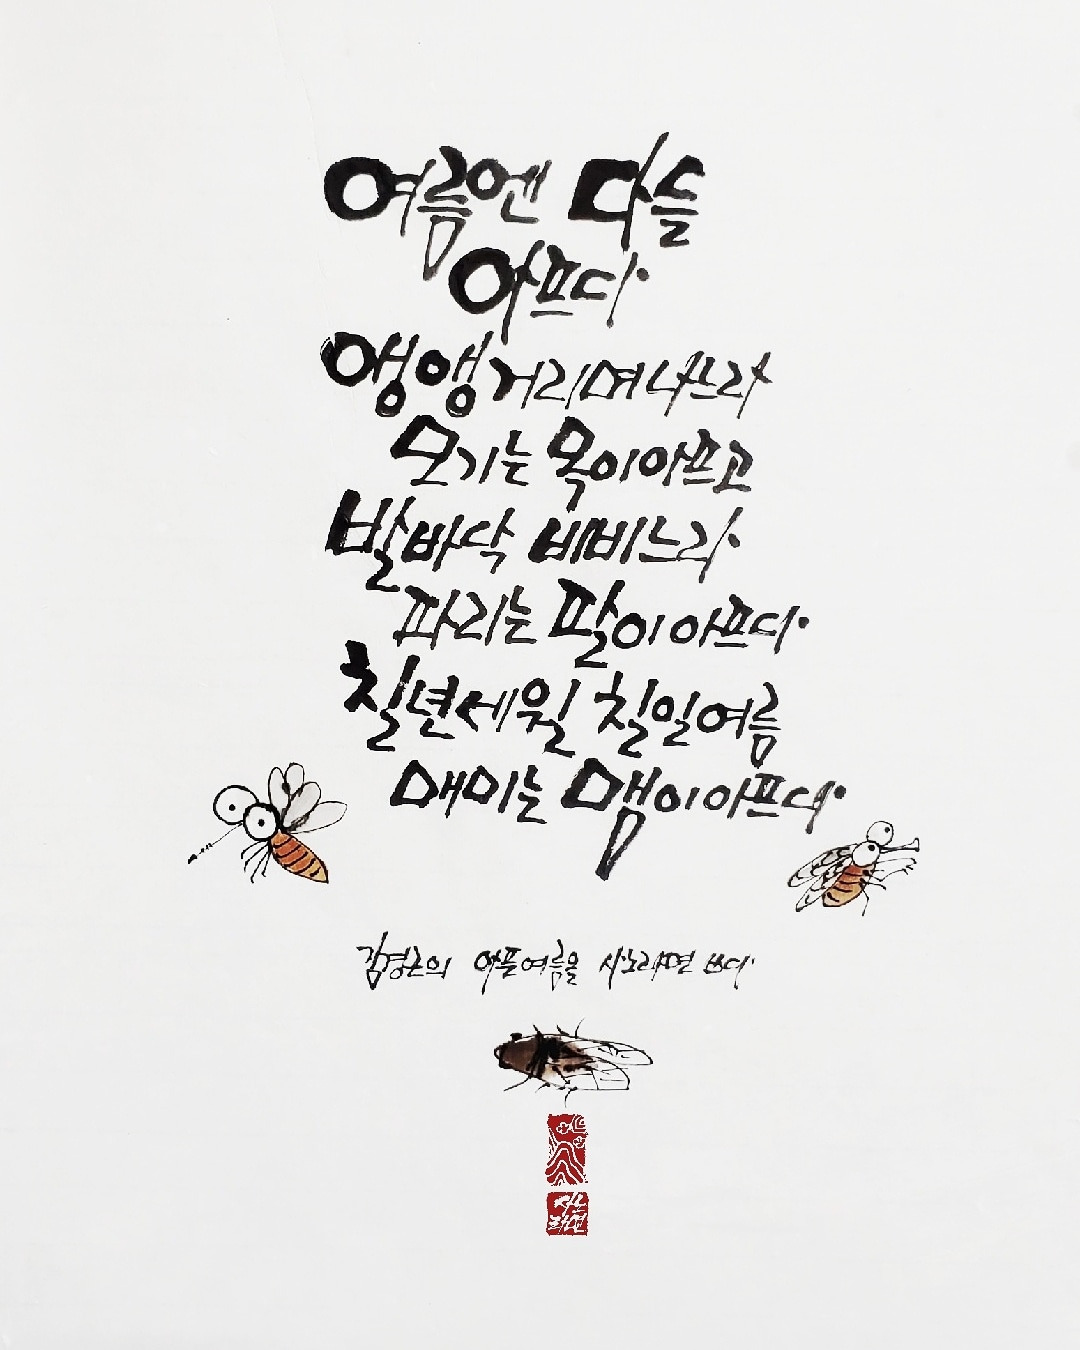 여름엔 다들
아프다.
앵앵거리며 나르라
모기는 목이 아프고
발바닥 비비느라
파리는 팔이 아프다.
칠년세월 칠일여름
매미는 맴이 아프다.
김경근의 아픈여름을 시노래면 쓰다.